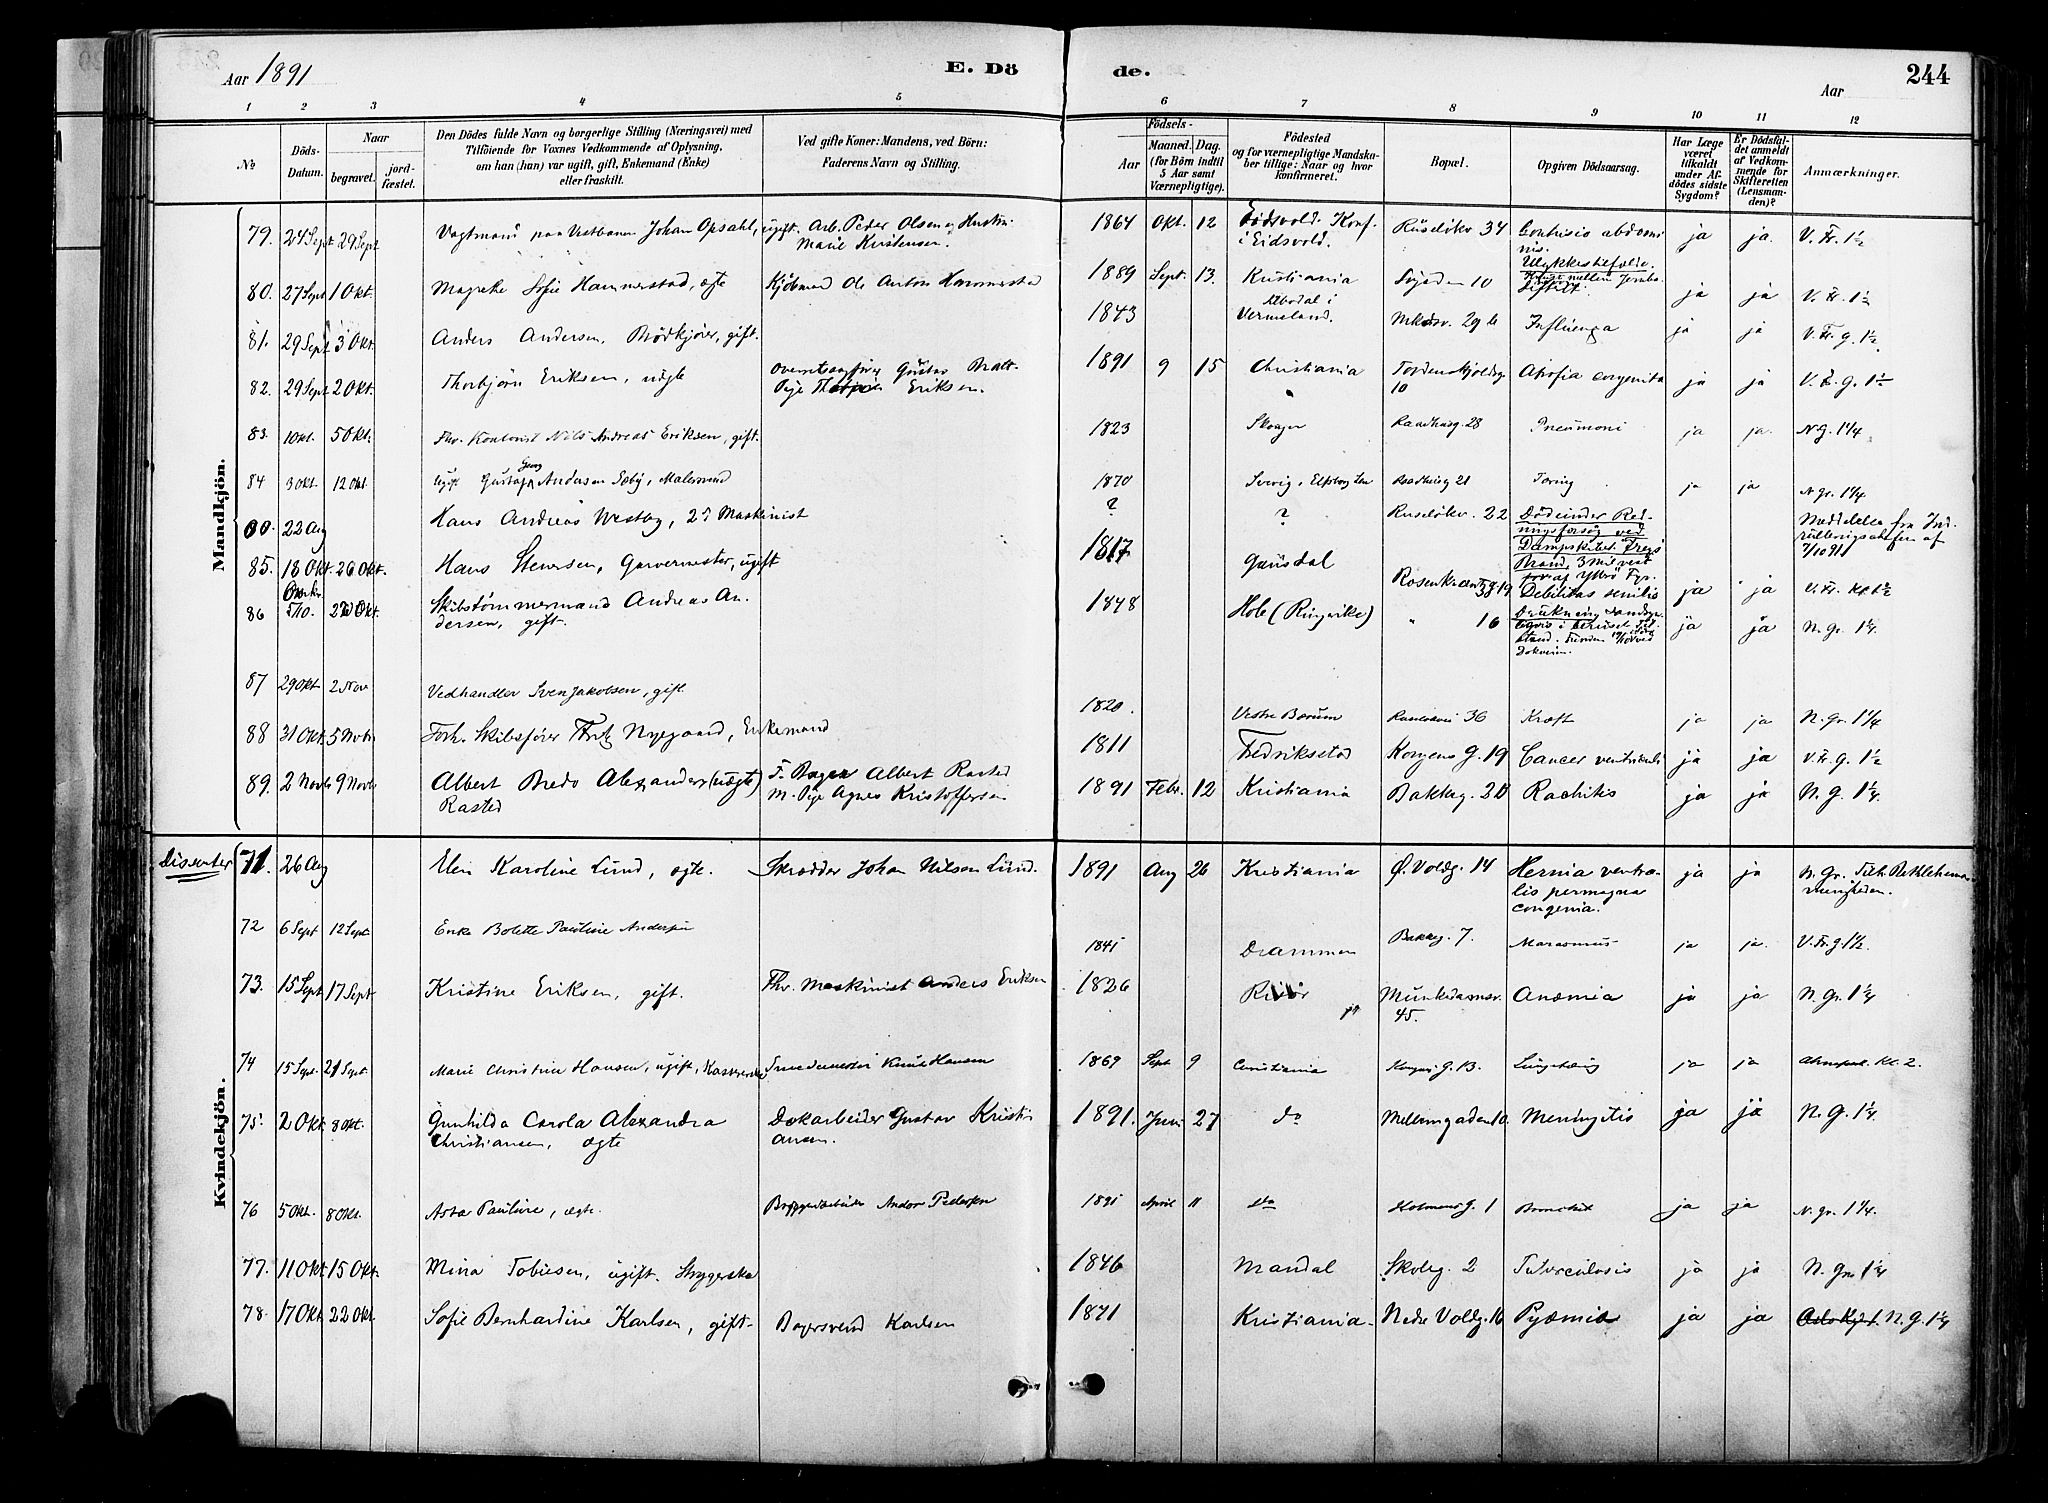 Aar 1891
E. Dö
de.
Aar
244
1 2 3 4 5 6 7 8 9 10 11 12
No
Döds-Datum.
Naar
begravet.
jord-fæstet.
Den Dödes fulde Navn og borgerlige Stilling (Næringsvei) med
Tilföiende for Voxnes Vedkommende af Oplysning,
om han (hun) var ugift, gift, Enkemand (Enke)
eller fraskilt.
Ved gifte Koner: Mandens, ved Börn:
Faderens Navn og Stilling.
Födsels-
Aar
Maaned. Dag.
(for Börn indtil
5 Aar samt
Værnepligtige).
Födested
og for værnepligtige Mandska-
ber tillige: Naar og hvor
konfirmeret.
Bopæl.
Opgiven Dödsaarsag.
Har Læge
været
tilkaldt
under Af-
dödes sidste
Sygdom?
Er Dödsfal-
det anmeldt
af Vedkom-
mende for
Skifteretten
(Lensman-
den)?
Anmærkninger.
Mandkjön.
79. 24 Sept. 29 Sept Vogtmand paa Vestbanen Johan Opsahl, ugift. Arb. Peder Olsen og Hustru Marie Kristensen. 1864 Okt. 12 Eidsvold. Konf. i Eidsvold. Ruseløkv 34 Contusio abdominis. Ulykkestilfælde. ja ja. V. Fr. 1½
80. 27 Sept 1 Okt. Sofie Hammerstad, ægte Kjøbmand Ole Anton Hammerstad 1889 Sept. 13. Kristiania 10 ja ja V. Fr. 1½
81. 29 Sept 3 Okt. Anders Andersen, Brødkjører, gift. 1843 i Vermeland. Munkedsv. 29 b Influenza ja ja V. Fr. g. 1½
82. 29 Sept 2 Okt. Thorbjørn Eriksen, uægte Gustav Bratt. Pige Eriksen. 1891 9 15 Christiania Tordenskjoldsg 10 Atrofia congenita ja ja V. Fr. g. 1½
83. 1 Okt. 5 Okt. Fhv. Kontorist Nils Andreas Eriksen, gift. 1823 Skoger Raadhusg. 28 Pneumoni ja ja. N. G. 1¼
84 3 Okt. 12 Okt. ugift Gustaf Georg Andersen Sæby, Malersvend 1870 Sverig, Elfsborg Len Raadhusg 21 Tæring ja ja N. Gr. 1¼
00. 22 Aug Hans Andreas Westby, 2den Maskinist ? ? Ruseløkv. 22 Døde under Redningsforsøg ved Dampskibet Strand, 3 Mil vest for af Fyr. Meddelelse fra af 7/10 91
85. 18 Okt. 26 Okt. Hans Stenersen, Garvermester, ugift 1817 Gausdal Rosenkrantzg 19 Debilitas senilis ja ja V. Fr. Kt. 1½
86 Skibstømmermand Andreas Andersen, gift. 1848 Hole (Ringerike) " 16 Drukning ja ja N. Gr. 1¼.
87 29 Okt 2 Nov Vedhandler Sven Jakobsen, gift 1820. Vestre Bærum 36 Kræft ja ja N. Gr. 1¼
88 31 Okt. 5 Novbr Forh. Skibsfører Nyegaard, Enkemand 1811 Fredriksstad Kongens G. 19 Cancer ventriculi ja ja V. Fr. G. 1½
89. 2 Novbr 9 Novbr Albert Bredo Alexander (uægte) Rasted F. Bager Albert Rasted M. Pige Agnes Kristoffersen 1891 Febr. 12 Kristiania Bakkeg. 20 Rachitis ja ja N. G. 1¼.
Kvindekjön.
Dissenter 71. 26 Aug Elen Karoline Lund, ægte. Skrædder Johan Nilsen Lund. 1891 Aug 26 Kristiania Ø. Voldg. 14 Hernia ventralis permagna congenia. ja ja N. Gr. Tilh. Bethlehems menigheden.
72 6 Sept 12 Sept Enke Bolette Pauline Andersen 1841 Drammen Bakkeg. 7. Marasmus ja ja. V. Fr. g 1½.
73. 15 Sept 17 Sept. Kristine Eriksen, gift. Fhv. Maskinist Anders Eriksen 1826 Risør Munkedamsv. 45. Anæmia ja ja N. Gr. 1¼
74 15 Sept. 21 Sept. Marie Christine Hansen, ugift, Smedemester Knut Hansen 1869 Sept 9 Christiania Kongens G. 13. ja ja Kl. 2.
75 2 Okt 8 Okt. Gunhilda Carola Alexandra Christiansen, ægte Dokarbeider Gustav Kristiansen. 1891. Juni 27 do Mellemgaden 10. Meningitis ja ja N. G. 1¼.
76 5 Okt. 8 Okt. Asta Pauline, ægte. Bryggearbeider Andor Pedersen 1891 April 11 do Holmens G. 1 Bronchit ja ja N. Gr. 1¼.
77. 11 Okt 15 Okt. Mina Tobiesen, ugift. Strygerske 1846 Mandal Skoleg. 2 Tuberculosis ja ja N. Gr. 1¼
78. 17 Okt 22 Okt. Sofie Bernhardine Karlsen, gift Bagersvend Karlsen 1871 Kristiania Nedre Voldg. 16 Pyæmia ja ja N. G. 1¼